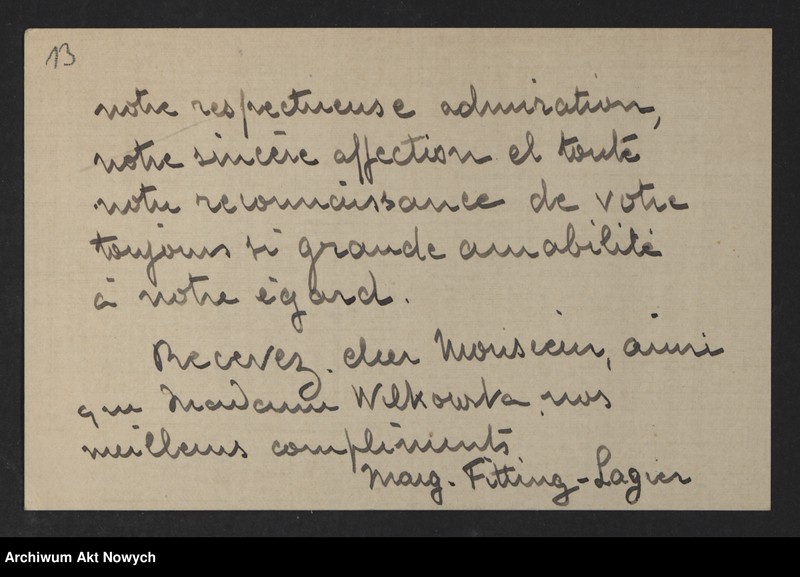 13
notre respectueuse admiration,
notre sincère affection et toute
notre reconnaissance de votre
toujours si grande amabilité
à notre égard.
Recevez, cher Monsieur, ainsi
que Madame Wilkowska, nos
meilleurs compliments
Marg. Fitting-Lagier
Archiwum Akt Nowych